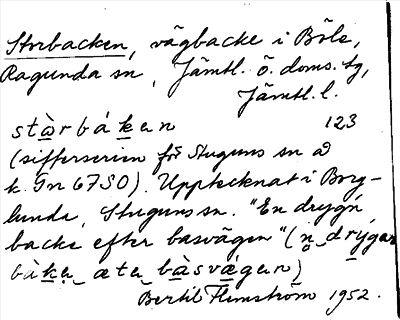 Storbacken, vägbacke i Böle,
Ragunda sn, Jämtl. ö. doms. tg,
Jämtl. l.
stàrbáken 123
(sifferserien för Stuguns sn å
k. Gn 6750). Upptecknat i Borg-
lunda, Stuguns sn. "En drygn
backe efter basvägen" (n drygan
bàkə ætə bàsvägən)
Bertil Flemström 1952.